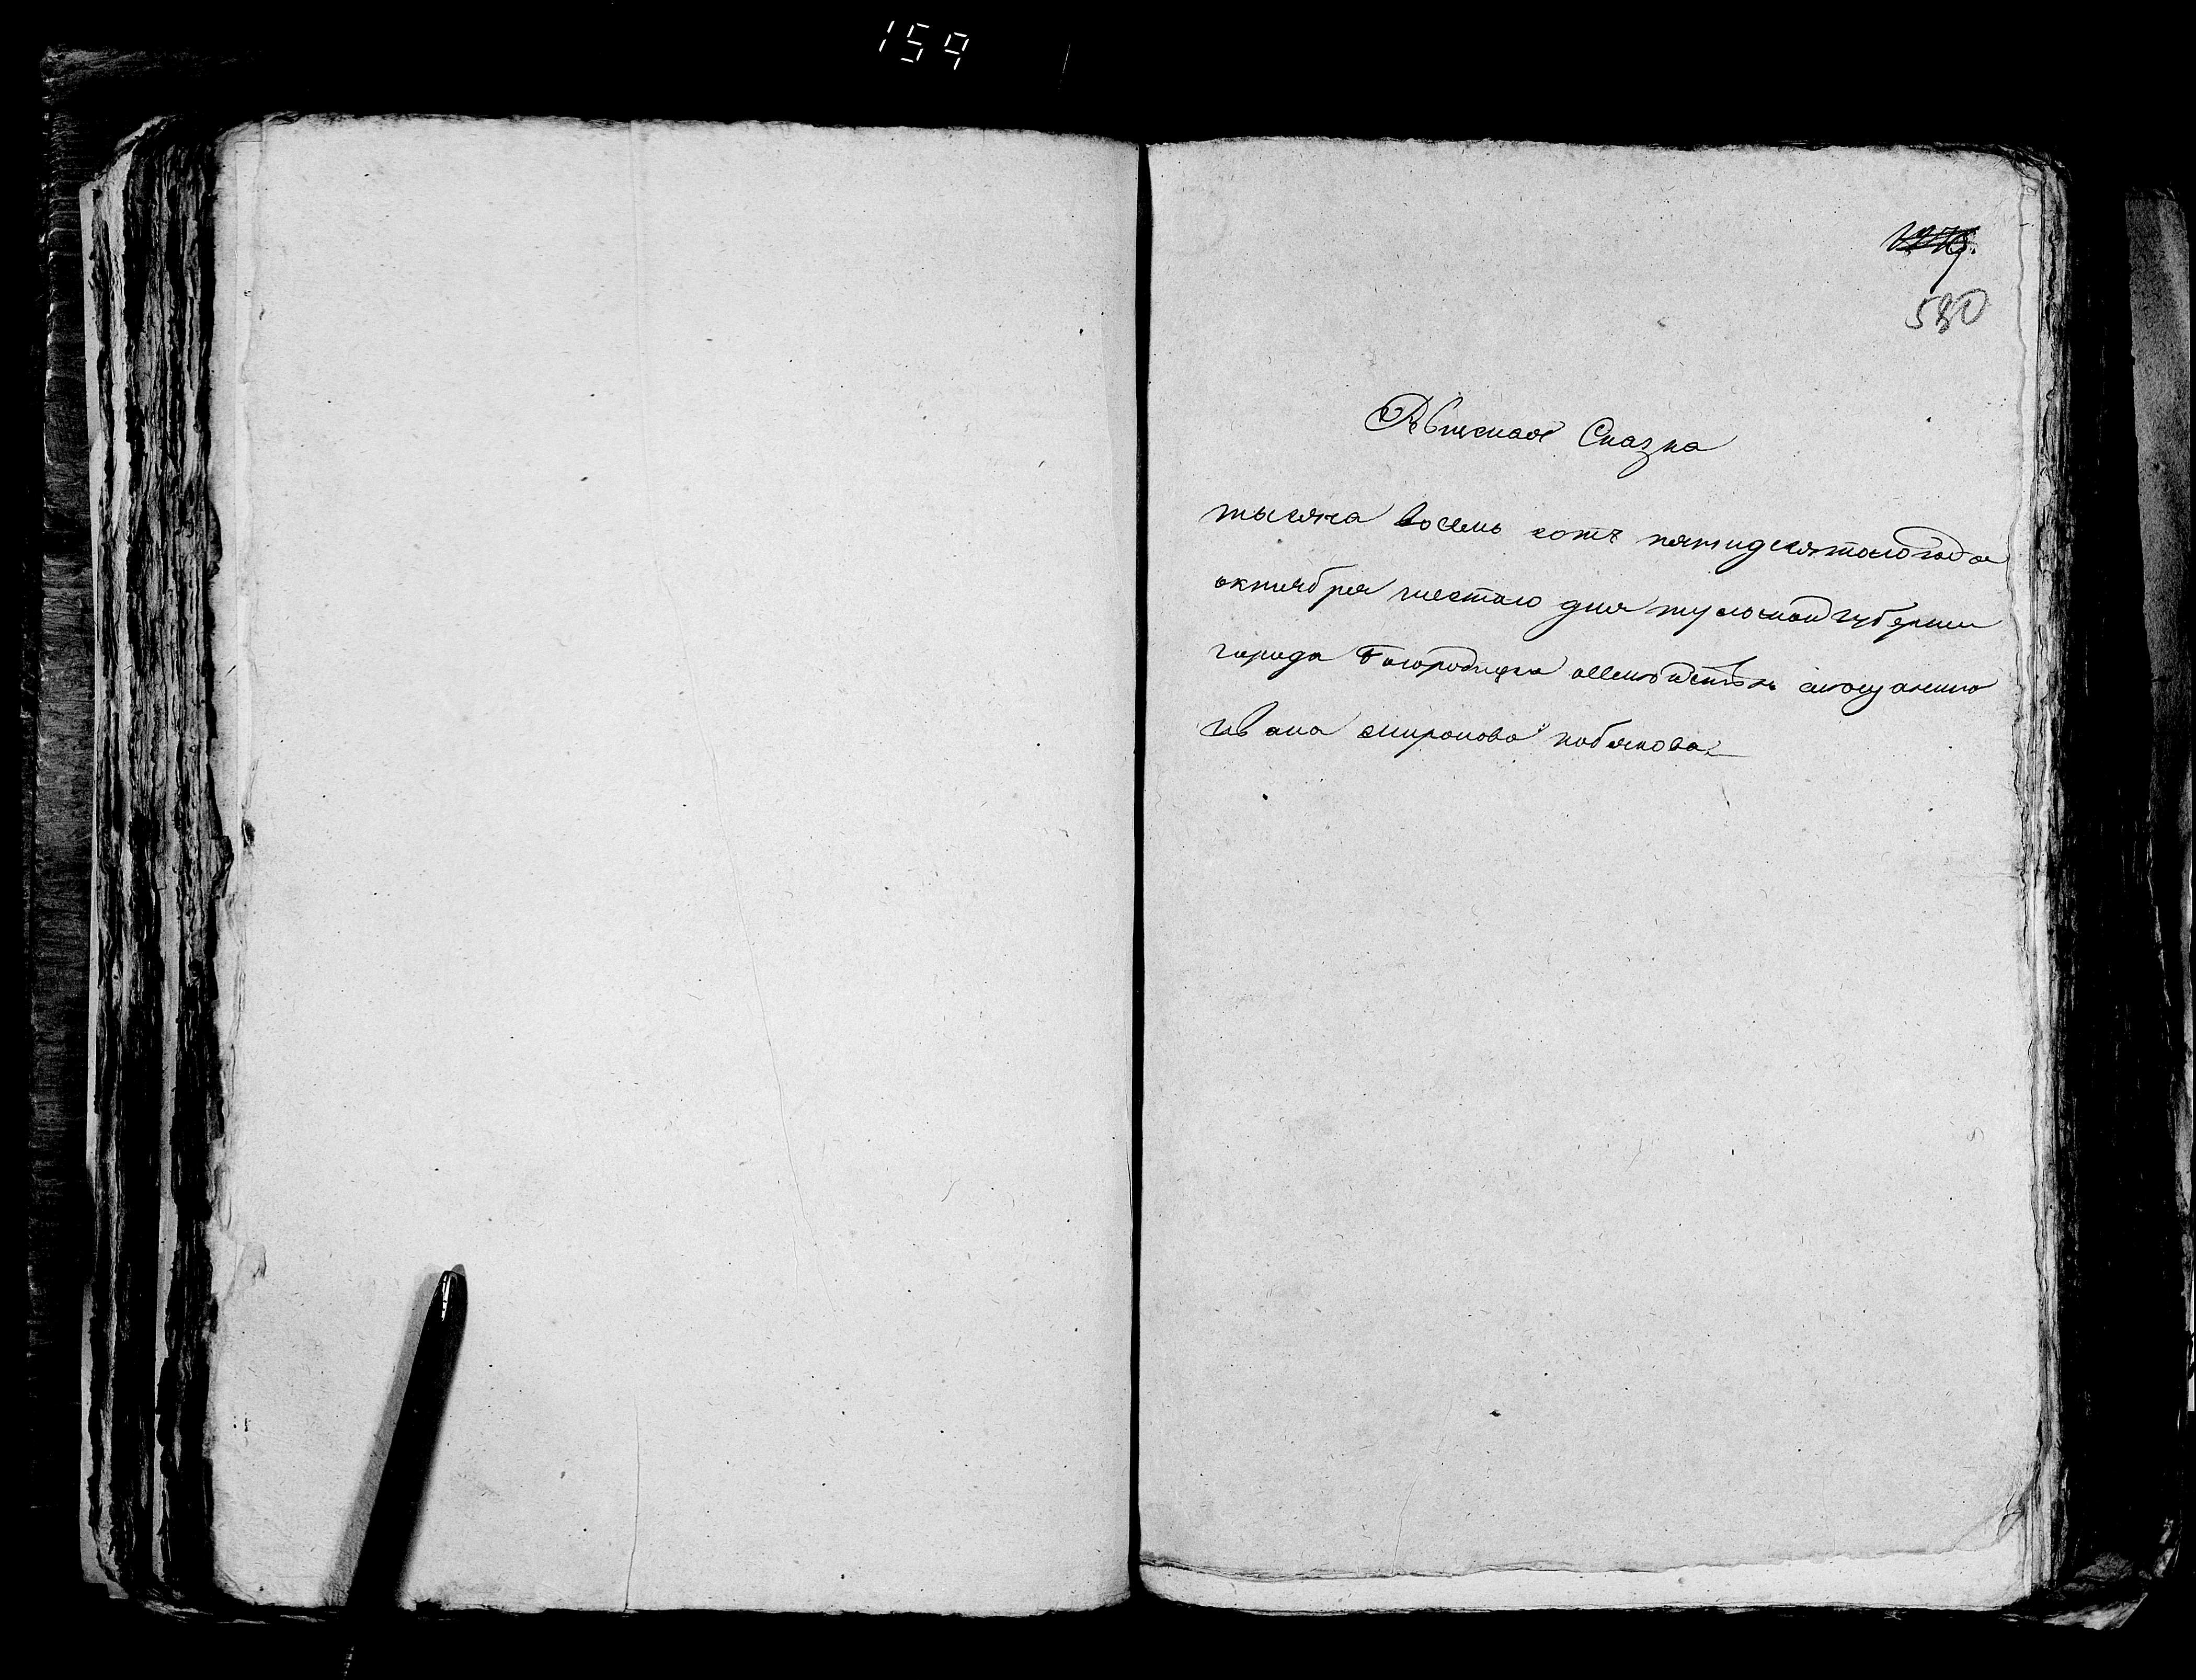 159
580
Рѣвижская Сказка
тысяча восемь сотъ пятидесятого года
октября шестого дня тульской губернии
города Богородицка мещанина
ивана миронова кобякова